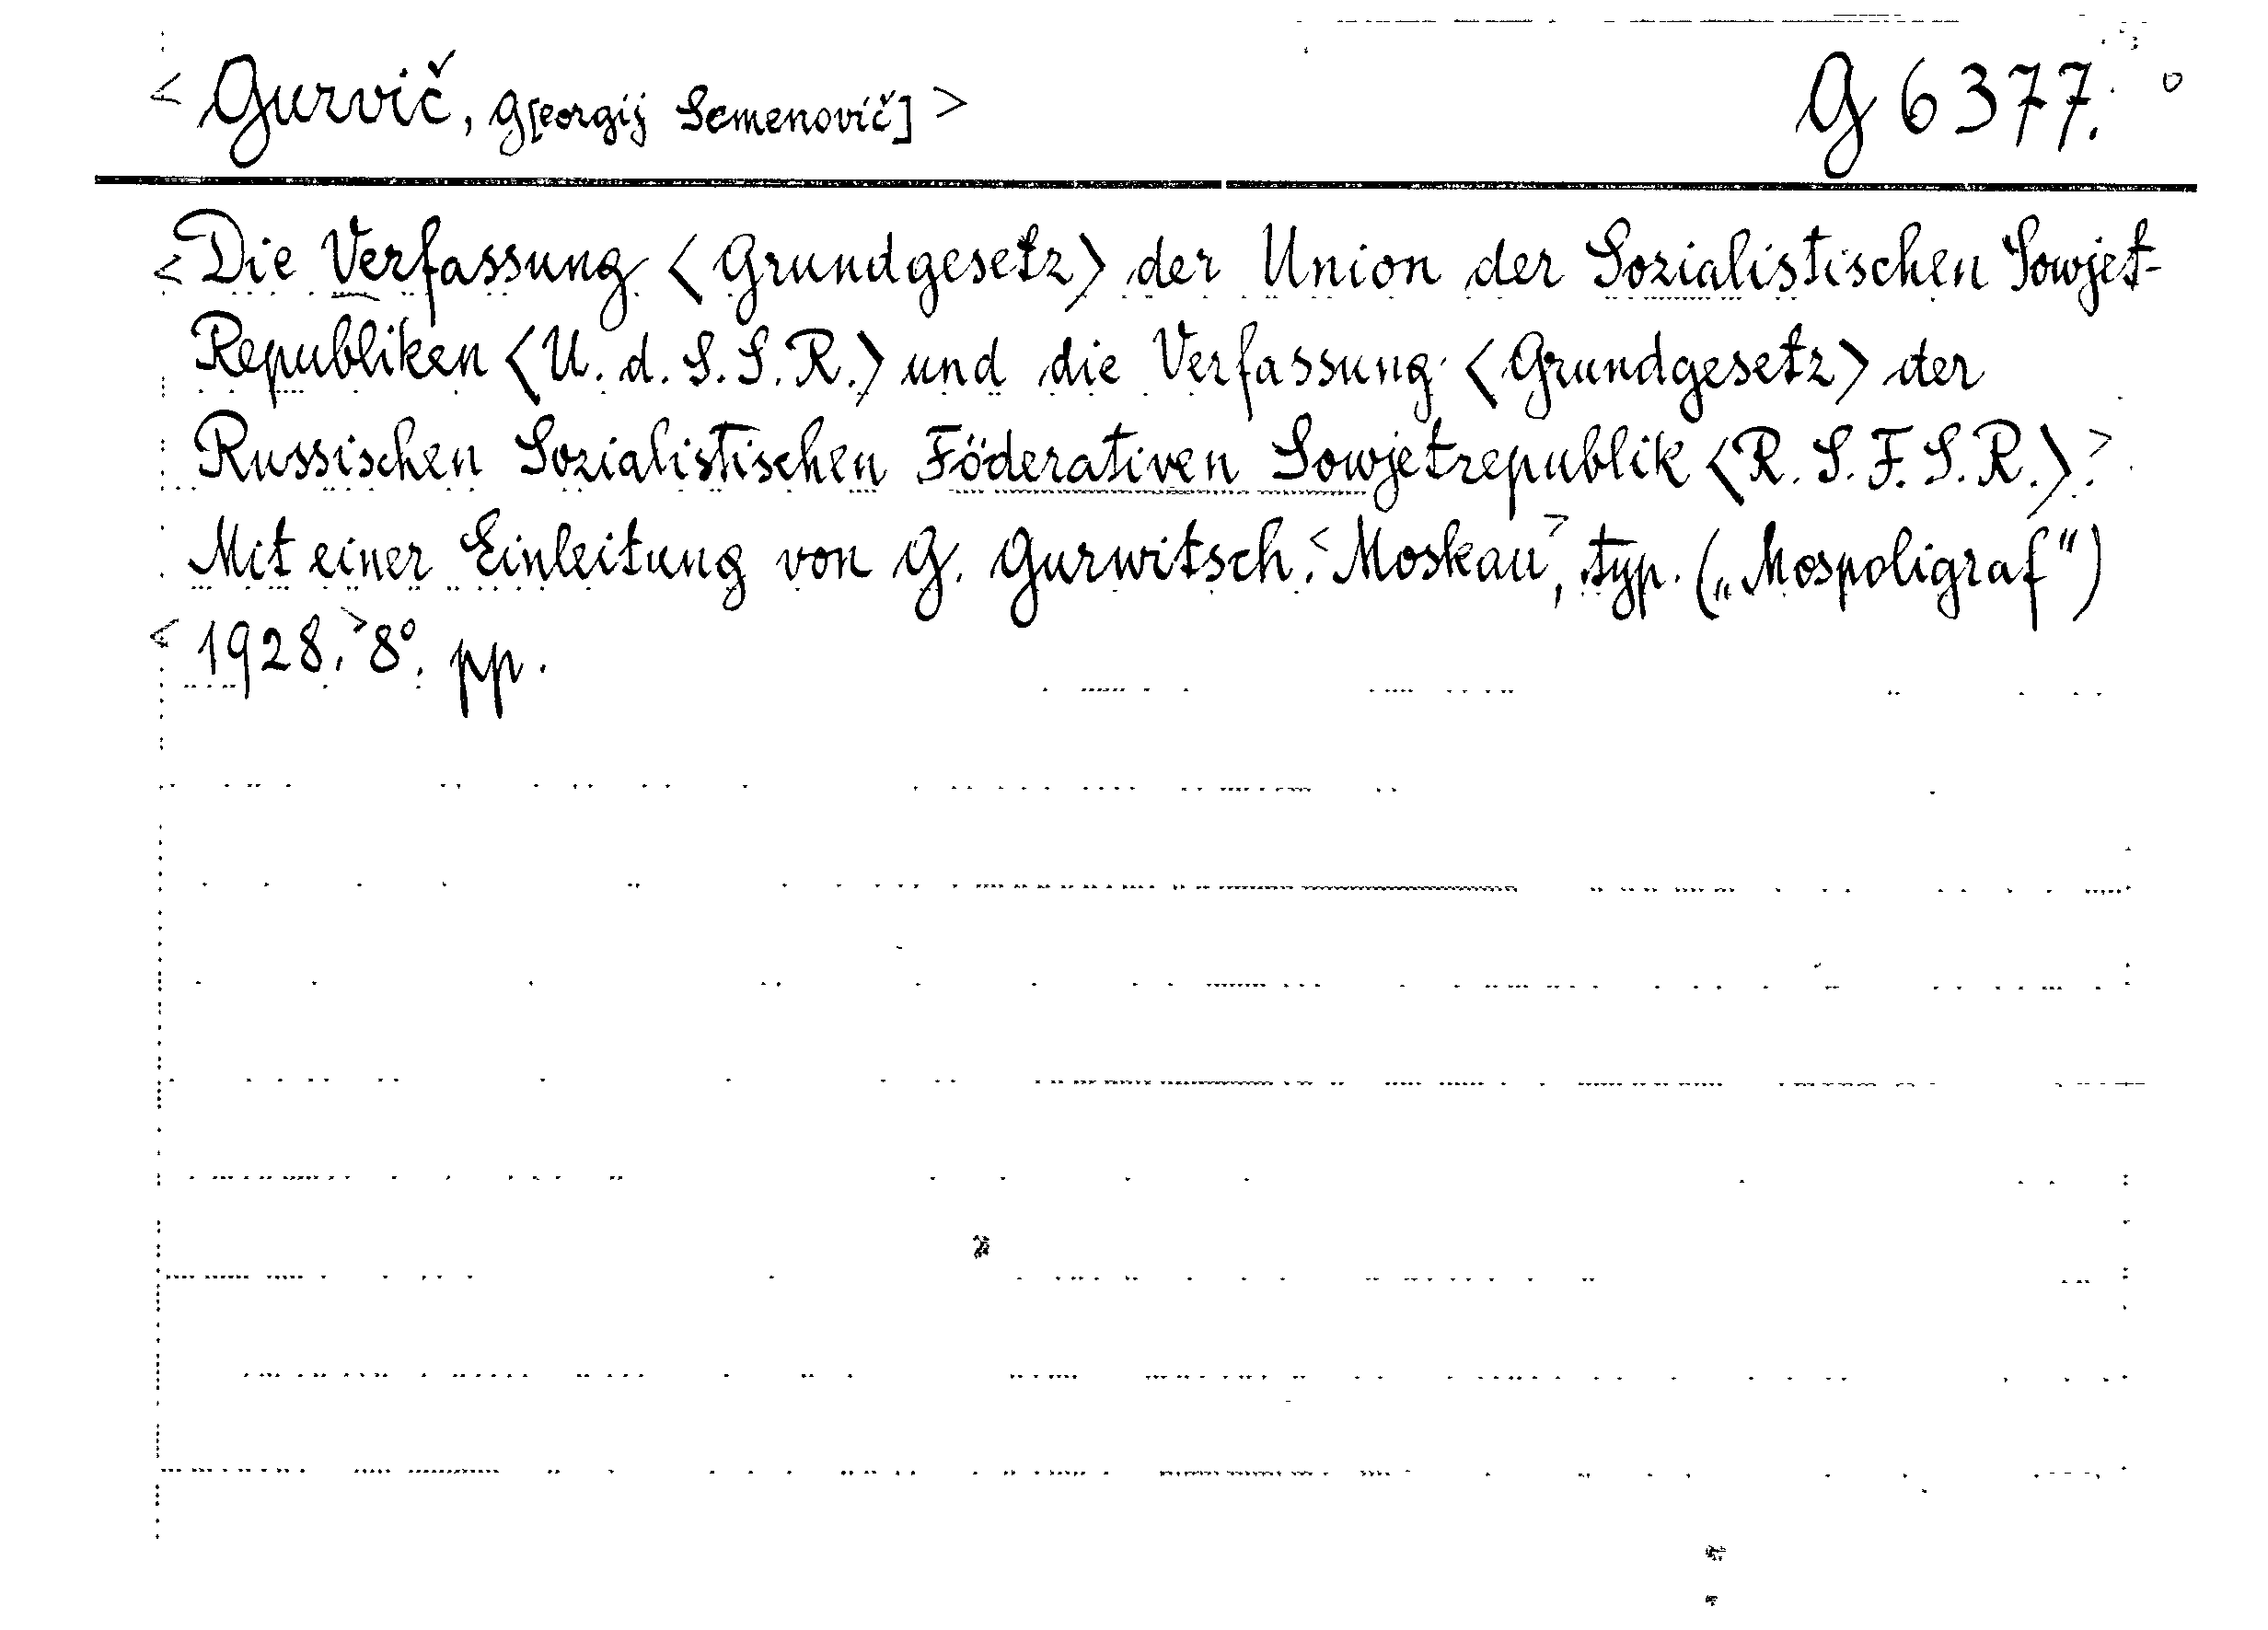 < Gurvič, G[eorgij Semenovič] > G 6377. °
< Die Verfassung < Grundgesetz > der Union der Sozialistischen Sowjet-
Republiken < U. d. S. S. R. > und die Verfassung < Grundgesetz > der
Russischen Sozialistischen Föderativen Sowjetrepublik < R. S. F. S. R. > . >
Mit einer Einleitung von G. Gurwitsch. < Moskau >, typ. („Mospoligraf“)
< 1928. > 8°. pp.